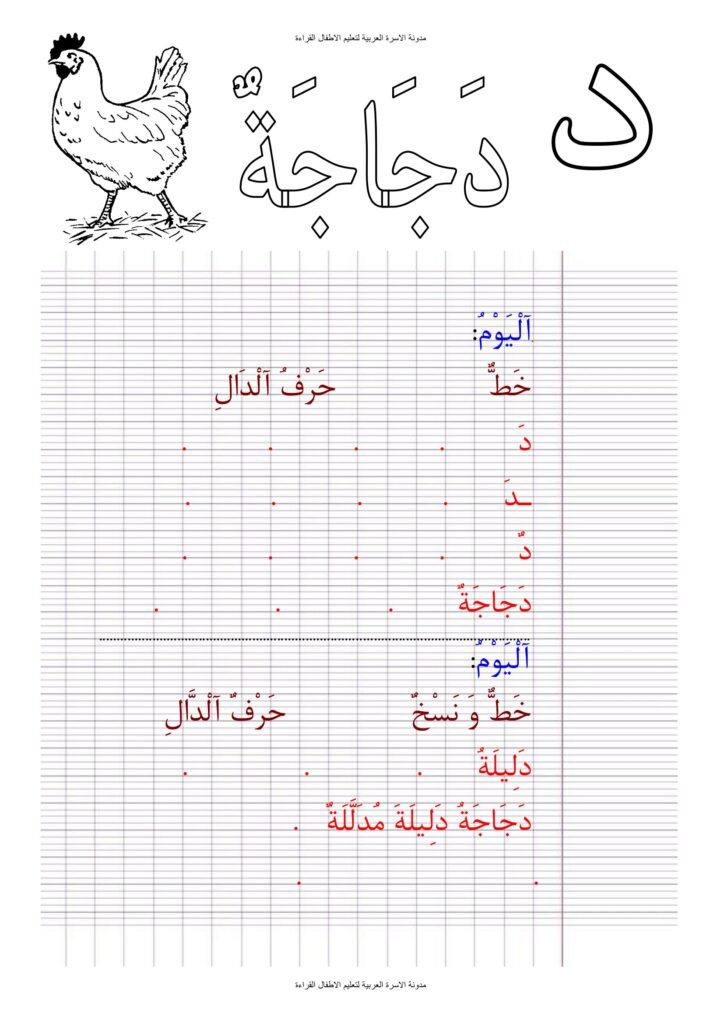 مدونة الاسرة العربية لتعليم الاطفال القراءة
د دَجَاجَةٌ
اَلْيَوْمُ:
خَطٌّ حَرْفُ اَلْدَالِ
دَ . . . .
ـدَ . . . .
دٌ . . . .
دَجَاجَةٌ . . .
اَلْيَوْمُ:
خَطٌّ وَ نَسْخٌ حَرْفُ اَلْدَّالِ
دَلِيلَةُ . . .
دَجَاجَةُ دَلِيلَةَ مُدَلَّلَةٌ .
. .
مدونة الاسرة العربية لتعليم الاطفال القراءة